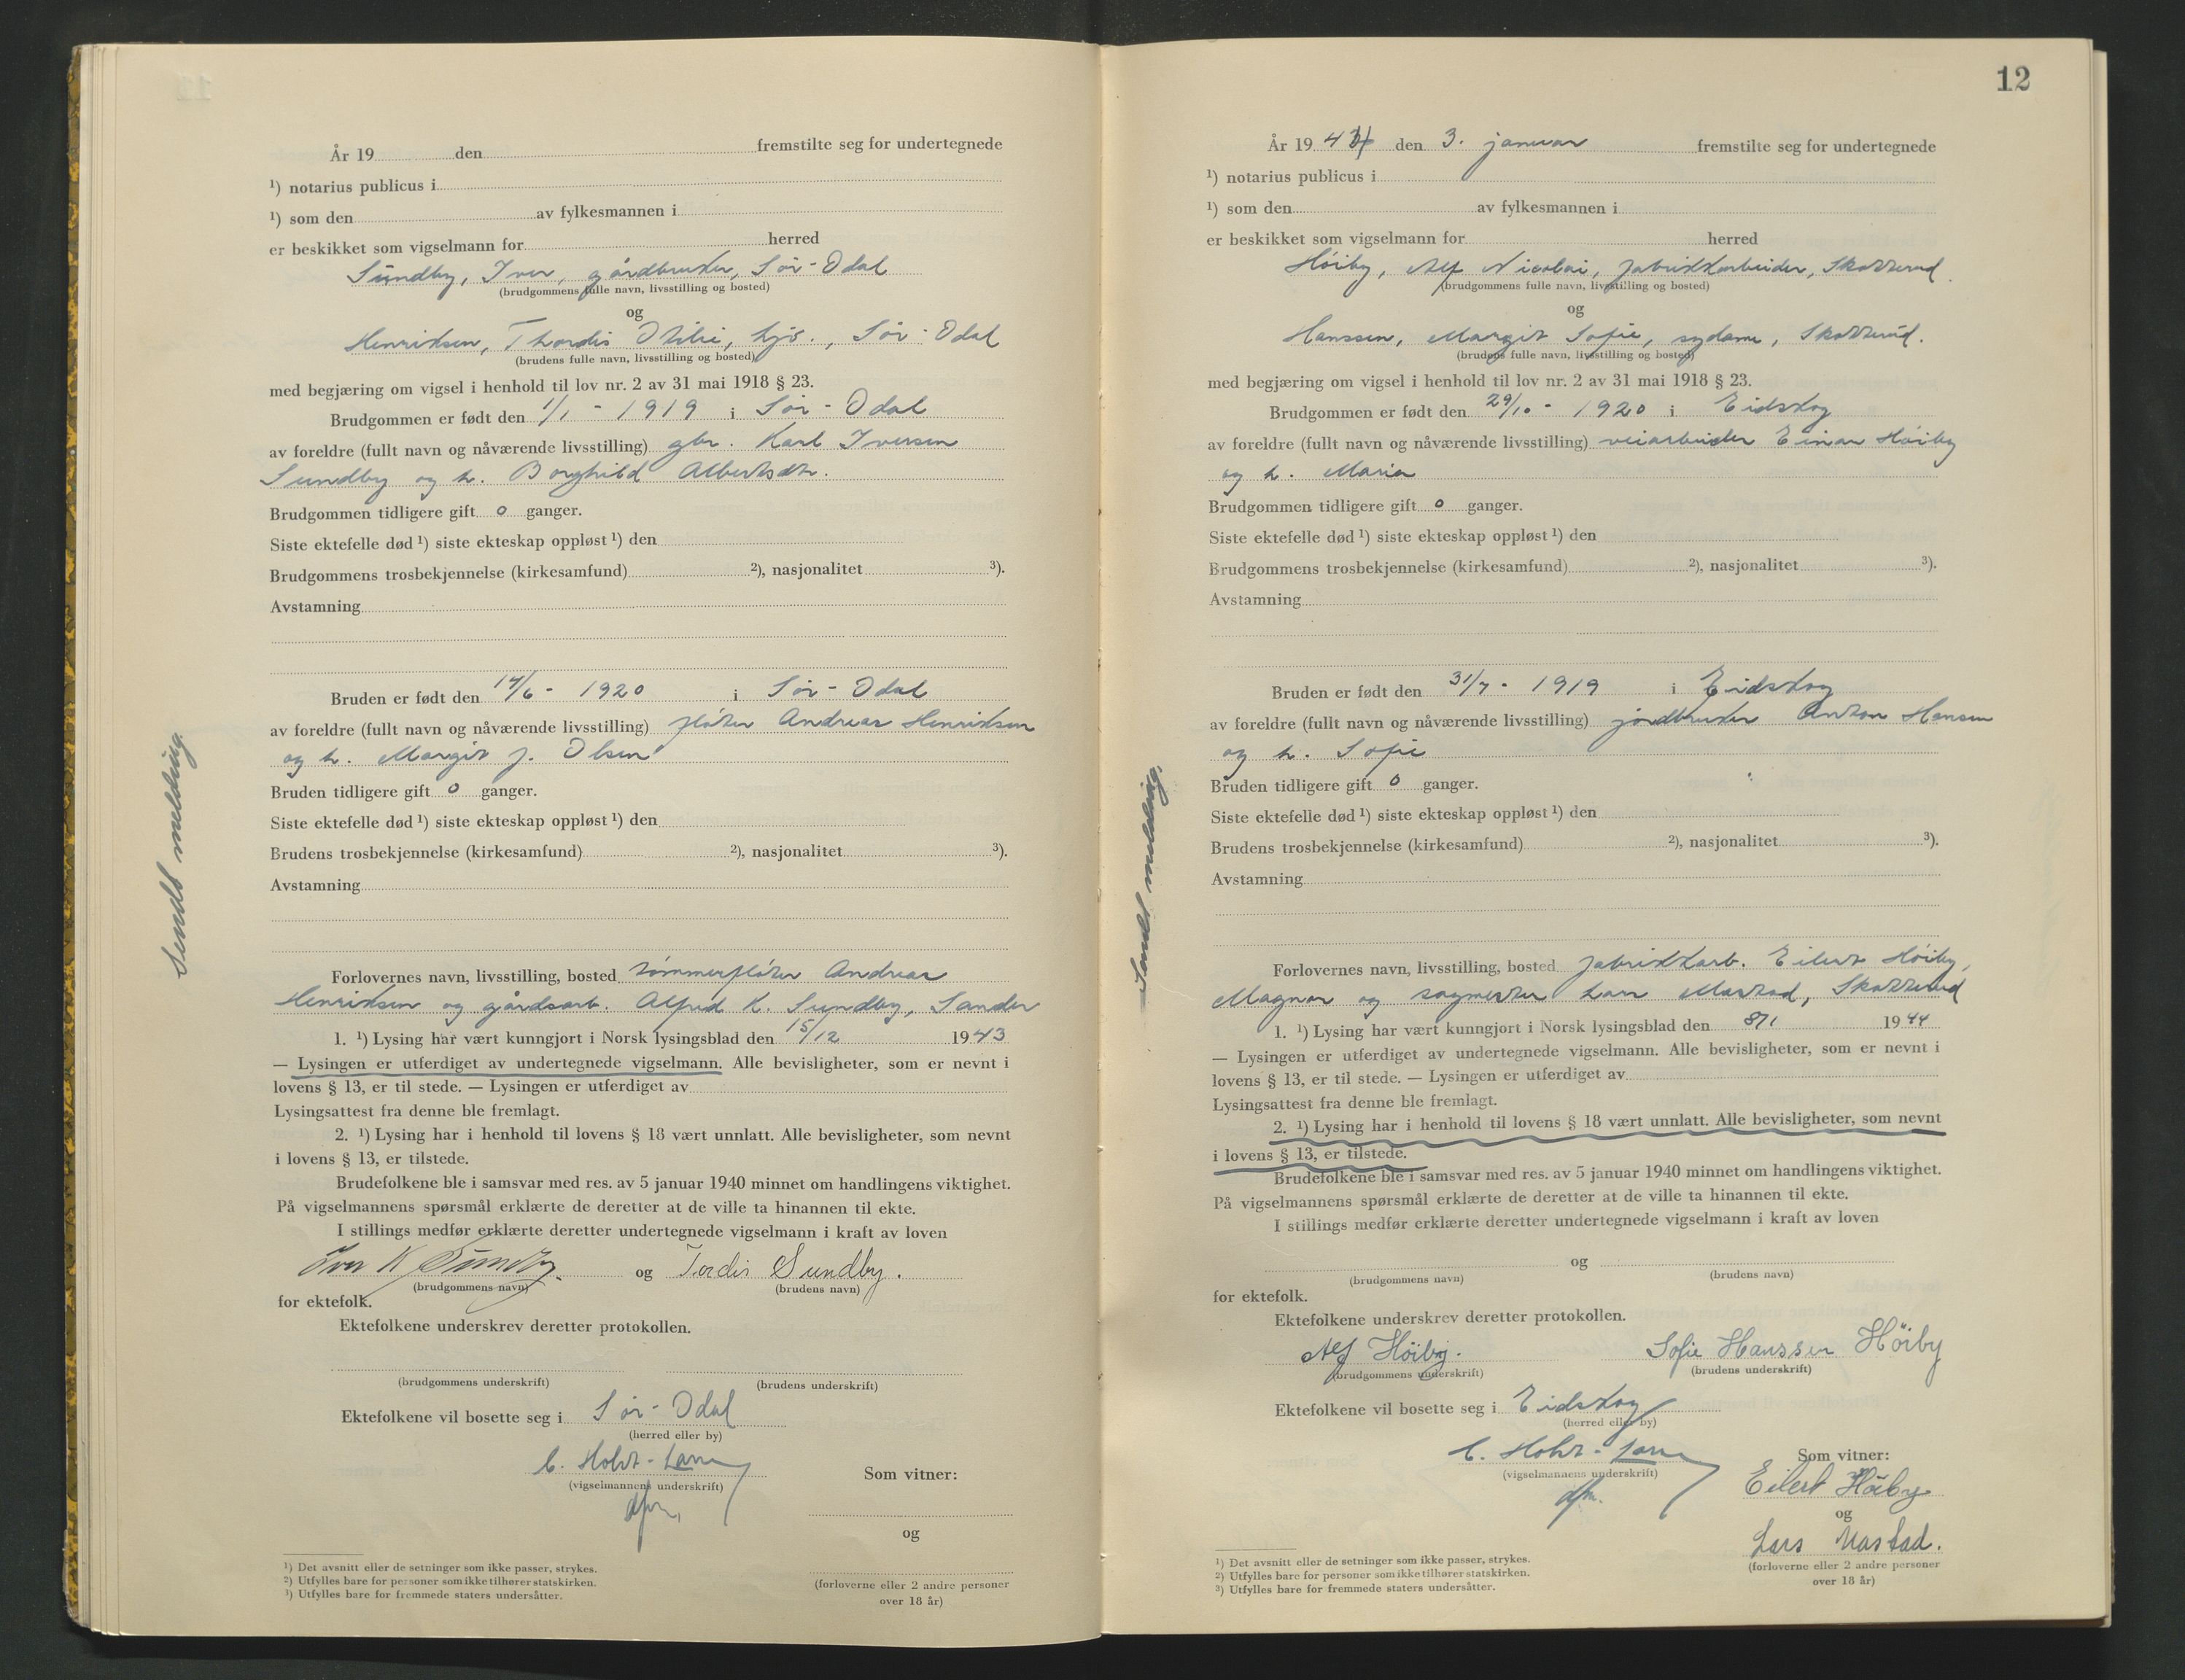 År 19 den fremstilte seg for undertegnede
¹) notarius publicus i
¹) som den av fylkesmannen i
er beskikket som vigselmann for herred
Sundby, Iver, gårdbruker, Sör-Odal
(brudgommens fulle navn, livsstilling og bosted)
og
Henriksen, Thordis Otilie, hjs., Sör-Odal
(brudens fulle navn, livsstilling og bosted)
med begjæring om vigsel i henhold til lov nr. 2 av 31 mai 1918 § 23.
Brudgommen er født den 1/1 - 1919 i Sör-Odal
av foreldre (fullt navn og nåværende livsstilling) gbr. Karl Iversen
Sundby og h. Borghild Albertsdtr.
Brudgommen tidligere gift 0 ganger.
Siste ektefelle død ¹) siste ekteskap oppløst ¹) den
Brudgommens trosbekjennelse (kirkesamfund) ²), nasjonalitet ³).
Avstamning
Bruden er født den 14/6 - 1920 i Sör-Odal
av foreldre (fullt navn og nåværende livsstilling) flöter Andreas Henriksen
og h. Margit f. Olsen
Bruden tidligere gift 0 ganger.
Siste ektefelle død ¹) siste ekteskap oppløst ¹) den
Brudens trosbekjennelse (kirkesamfund) ²), nasjonalitet ³).
Avstamning
Sendt melding.
Forlovernes navn, livsstilling, bosted tömmerflöter Andreas
Henriksen og gårdsarb. Alfred K. Sundby, Sander
1. ¹) Lysing har vært kunngjort i Norsk lysingsblad den 15/12 1943
— Lysingen er utferdiget av undertegnede vigselmann. Alle bevisligheter, som er nevnt i
lovens § 13, er til stede. — Lysingen er utferdiget av
Lysingsattest fra denne ble fremlagt.
2. ¹) Lysing har i henhold til lovens § 18 vært unnlatt. Alle bevisligheter, som nevnt
i lovens § 13, er tilstede.
Brudefolkene ble i samsvar med res. av 5 januar 1940 minnet om handlingens viktighet.
På vigselmannens spørsmål erklærte de deretter at de ville ta hinannen til ekte.
I stillings medfør erklærte deretter undertegnede vigselmann i kraft av loven
Iver K Sundby. og Tordis Sundby.
(brudgommens navn) (brudens navn)
for ektefolk.
Ektefolkene underskrev deretter protokollen.
(brudgommens underskrift) (brudens underskrift)
Ektefolkene vil bosette seg i Sör-Odal
(herred eller by)
C. Holst-Larsen
(vigselmannens underskrift)
dfm.
Som vitner:
og
(forloverne eller 2 andre personer
over 18 år)
¹) Det avsnitt eller de setninger som ikke passer, strykes.
²) Utfylles bare for personer som ikke tilhører statskirken.
³) Utfylles bare for fremmede staters undersåtter.
12
År 1944 den 3. januar fremstilte seg for undertegnede
¹) notarius publicus i
¹) som den av fylkesmannen i
er beskikket som vigselmann for herred
Höiby, Alf Nicolai, fabrikkarbeider, Skotterud.
(brudgommens fulle navn, livsstilling og bosted)
og
Hanssen, Margit Sofie, sydame, Skotterud.
(brudens fulle navn, livsstilling og bosted)
med begjæring om vigsel i henhold til lov nr. 2 av 31 mai 1918 § 23.
Brudgommen er født den 29/10 - 1920 i Eidskog
av foreldre (fullt navn og nåværende livsstilling) veiarbeider Einar Höiby
og h. Maria
Brudgommen tidligere gift 0 ganger.
Siste ektefelle død ¹) siste ekteskap oppløst ¹) den
Brudgommens trosbekjennelse (kirkesamfund) ²), nasjonalitet ³).
Avstamning
Bruden er født den 31/7 - 1919 i Eidskog
av foreldre (fullt navn og nåværende livsstilling) jordbruker Anton Hansen
og h. Sofie
Bruden tidligere gift 0 ganger.
Siste ektefelle død ¹) siste ekteskap oppløst ¹) den
Brudens trosbekjennelse (kirkesamfund) ²), nasjonalitet ³).
Avstamning
Sendt melding.
Forlovernes navn, livsstilling, bosted fabrikkarb. Eilert Höiby,
Magnor og sagmester Lars Mastad, Skotterud
1. ¹) Lysing har vært kunngjort i Norsk lysingsblad den 8/1 1944
— Lysingen er utferdiget av undertegnede vigselmann. Alle bevisligheter, som er nevnt i
lovens § 13, er til stede. — Lysingen er utferdiget av
Lysingsattest fra denne ble fremlagt.
2. ¹) Lysing har i henhold til lovens § 18 vært unnlatt. Alle bevisligheter, som nevnt
i lovens § 13, er tilstede.
Brudefolkene ble i samsvar med res. av 5 januar 1940 minnet om handlingens viktighet.
På vigselmannens spørsmål erklærte de deretter at de ville ta hinannen til ekte.
I stillings medfør erklærte deretter undertegnede vigselmann i kraft av loven
og
(brudgommens navn) (brudens navn)
for ektefolk.
Ektefolkene underskrev deretter protokollen.
Alf Höiby. Sofie Hanssen Höiby
(brudgommens underskrift) (brudens underskrift)
Ektefolkene vil bosette seg i Eidskog
(herred eller by)
C. Holst-Larsen
(vigselmannens underskrift)
dfm.
Som vitner:
Eilert Höiby
og
Lars Mastad.
(forloverne eller 2 andre personer
over 18 år)
¹) Det avsnitt eller de setninger som ikke passer, strykes.
²) Utfylles bare for personer som ikke tilhører statskirken.
³) Utfylles bare for fremmede staters undersåtter.